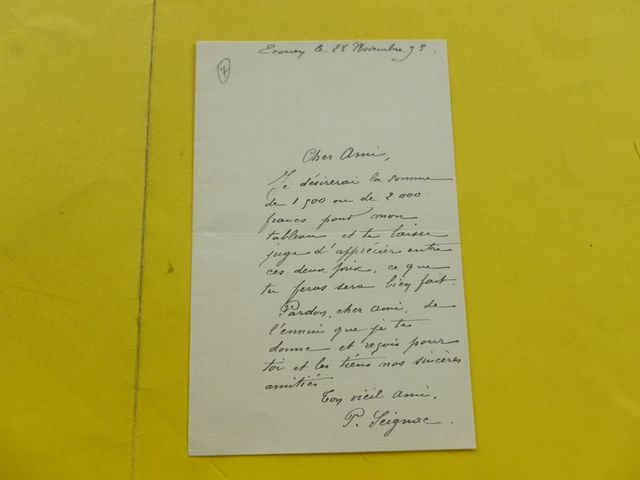 Ecouen le 28 Novembre 93.
Cher Ami,
Je désirerai la somme
de 1 500 ou de 2 000
francs pour mon
tableau et te laisse
juge d'apprécier entre
ces deux prix, ce que
tu feras sera bien fait.
Pardon, cher ami, de
l'ennui que je te
donne et reçois pour
toi et les tiens nos sincères
amitiés
Ton vieil ami,
P. Seignac.